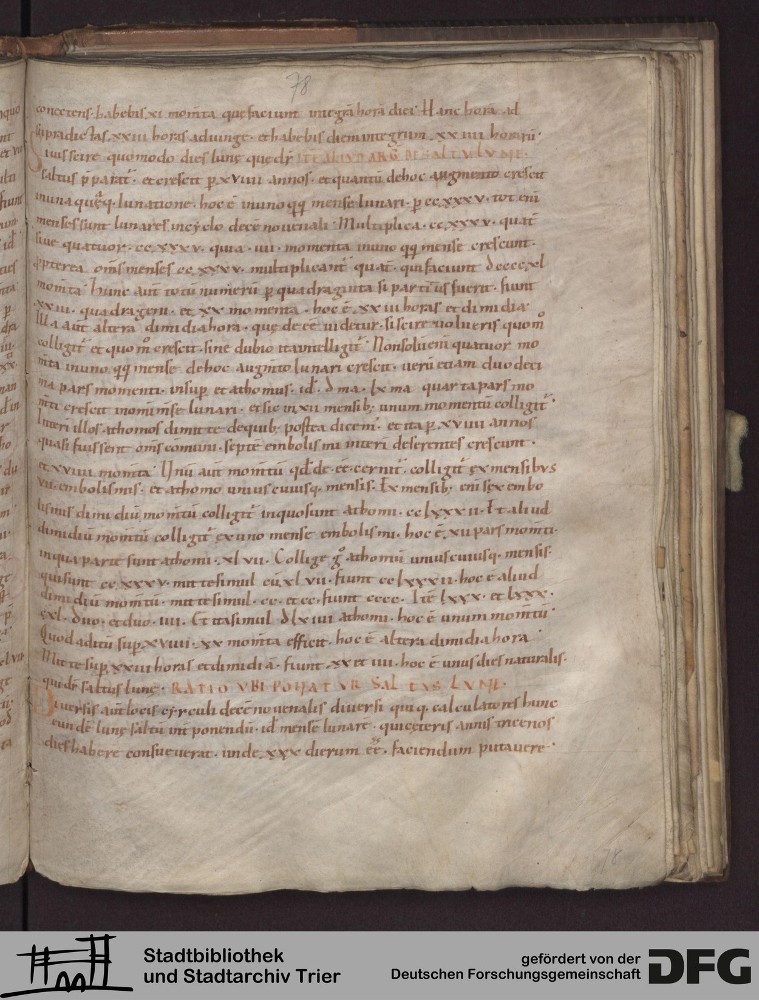 78
concretens habebis xl momta que faciunt integrã horã diei Hanc horã ad
supradictas xxiii horas adiunge et habebis diem integrum xx iiii horarũ
Si vis scire quomodo dies lunę que dr̄ ITE ALIVD ARG DE SALTV LVNE
saltus p̄parat̄ et crescit p xviiii annos et quantũ de hoc augmento crescit
in una quęq; lunatione hoc ē in uno qq; mense lunari p cc xxxv tot eni
menses sunt lunares in cyclo decē novenali Multiplica cc xxxv quat̄
sive quatuor cc xxxv quia iiii momenta in uno qq; mense crescunt
p̄terea oms menses cc xxxv multiplicant quat̄ qui faciunt dcccc xl
momta Hunc aut̄ totũ numerũ p quadraginta si partitus fuerit fiunt
xxiii quadrageni et xx momenta hoc ē xx iii horas et dimidiã
Illa aut̄ altera dimidia hora que deēē videtur si scire volueris quom̄
colligit̄ et quom̄ crescit sine dubio ita intelligit̄ Non solum quatuor mo
mta in uno qq; mense de hoc augmto lunari crescit verũ etiam duo deci
ma pars momenti insup et athomus id d ma lx ma quarta pars mo
mti crescit in om̄i mse lunari et sic in xii mensib; unum momentũ colligit̄
Interi illos athomos dimitte de quib; postea dicem et ita p xviiii annos
quasi fuissent oms comuni septē embolismi interi deserentes crescunt
et xviiii momta Unũ aut̄ momtũ qd deēē cernit̄ colligit̄ ex mensibus
vii embolismis et athomo unius cuiusq; mensis Ex mensib; eni sex embo
lismis dimidiũ momtũ colligit̄ in quo sunt athomi cc lxxx ii Et aliud
dimidiũ momtũ colligit̄ ex uno mense embolismi hoc ē xii pars momti
in qua parte sunt athomi xl vii Collige g° athomũ unius cuiusq; mensis
qui sunt cc xxxv mitte simul cũ xl vii fiunt cc lxxx ii hoc ē aliud
dimidiũ momtũ mitte simul cc et cc fiunt cccc Itē lxxx et lxxx
clx duo et duo iiii Et ita simul d lx iiii athomi hoc ē unum momtũ
Quod additũ sup xviiii xx momta efficit hoc ē altera dimidia hora
Mitte sup xxiii horas et dimidiã fiunt xx et iiii hoc ē unus dies naturalis
qui dr̄ saltus lunę RATIO VBI PONATVR SALTVS LVNE
Diversis aut̄ locis cyrculi decē novenalis diversi quiq; calculatores hunc
eundē lunę saltũ int ponendũ id mense lunari qui ceteris annis tricenos
dies habere consueverat inde xxx dierum eē faciendum putavere
78
Stadtbibliothek
und Stadtarchiv Trier
gefördert von der
Deutschen Forschungsgemeinschaft
DFG